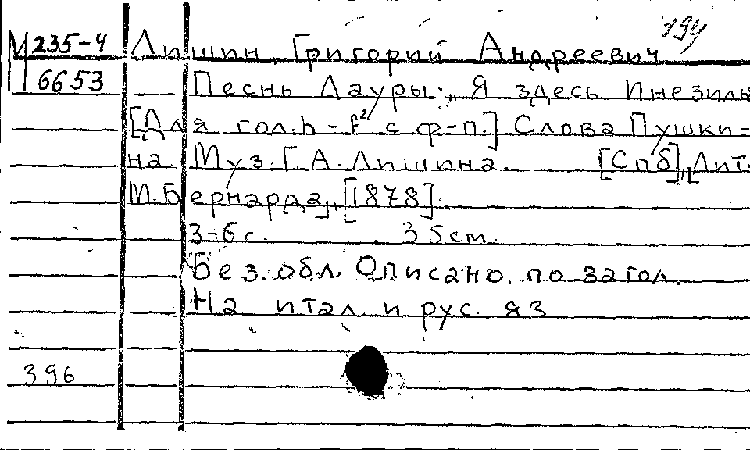 194
М 235-4 Лишин, Григорий Андреевич
6653 Песнь Лауры: „Я здесь Инезиль
[Для гол. h - f² с ф-п.] Слова Пушки-
на Муз. Г. А. Лишина. [Спб], [Лит.
М. Бернарда], [1878].
3-6 с. 35 cm.
Без. обл. Описано по загол.
На итал. и рус. яз
396